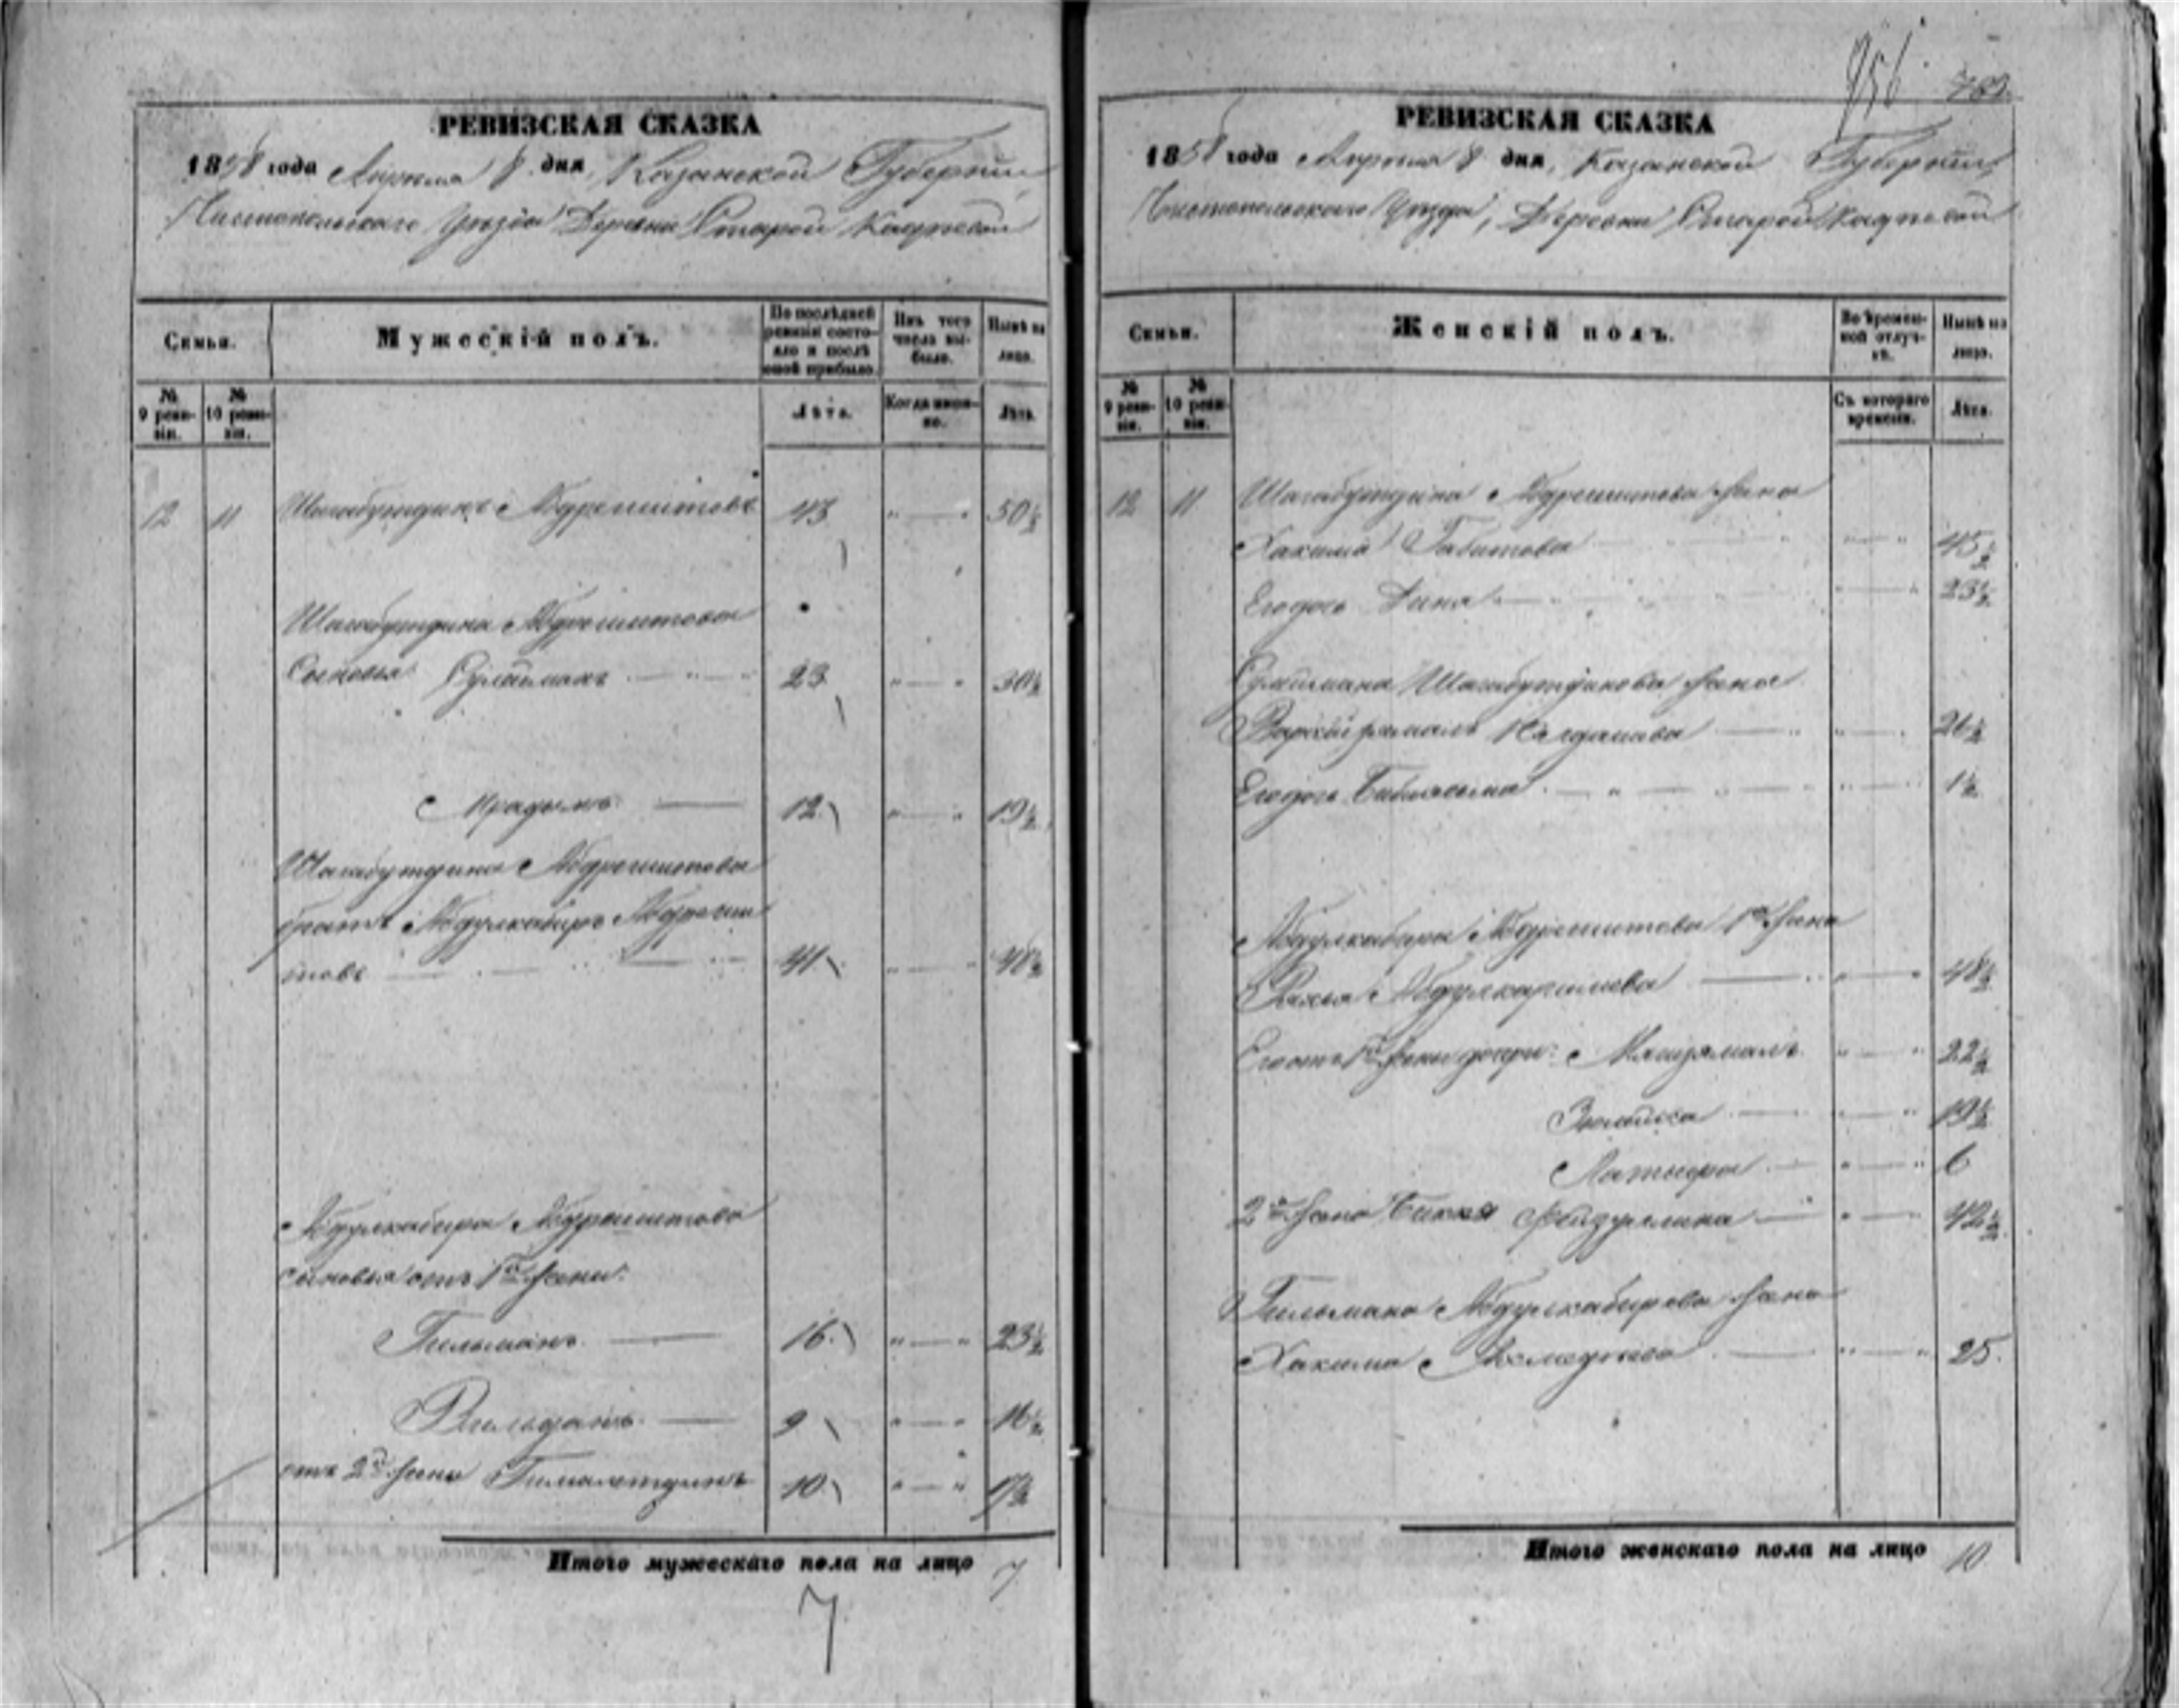 РЕВИЗСКАЯ СКАЗКА
1858 года Апреля 8 дня, Казанской Губернии
Чистопольскаго Уезда Деревни Старой
Семьи.
Мужескій полъ.
По послѣдней ревизіи состояло и послѣ оной прибыло.
Изъ того числа выбыло.
Нынѣ на лицо.
№ 9 ревизіи.
№ 10 ревизіи.
Лѣта.
Когда именно.
Лѣта.
12 11 Шагабутдинъ Абдрешитовъ 43 50½
Шагабутдина Абдрешитова
Сыновья Сулейманъ 23 30½
12 19½
Шагабутдина Абдрешитова
братъ Абдулкабиръ Абдреши
товъ 41 48½
Абдулкабира Абдрешитова
сыновья отъ 1й жены
Гильманъ 16 23½
9 16½
отъ 2й жены 10 17½
Итого мужескаго пола на лицо 7
7
956
РЕВИЗСКАЯ СКАЗКА
1858 года Апреля 8 дня, Казанской Губернии
Чистопольскаго Уезда, Деревни Старой
Семьи.
Женскій полъ.
Во временной отлучкѣ.
Нынѣ на лицо.
№ 9 ревизіи.
№ 10 ревизіи.
Съ котораго времени.
Лѣта.
12 11 Шагабутдина Абдрешитова жена
Хакима Габитова 45½
Его дочь 23½
Сулеймана Шагабутдинова жена
26½
Его дочь 1½
Абдулкабира Абдрешитова 1я жена
Абдулкаримова 48½
Его отъ 1й жены дочери 22½
19½
6
2я жена Бикя Фейзуллина 42½
Гильмана Абдулкабирова жена
Хакима 25
Итого женскаго пола на лицо 10